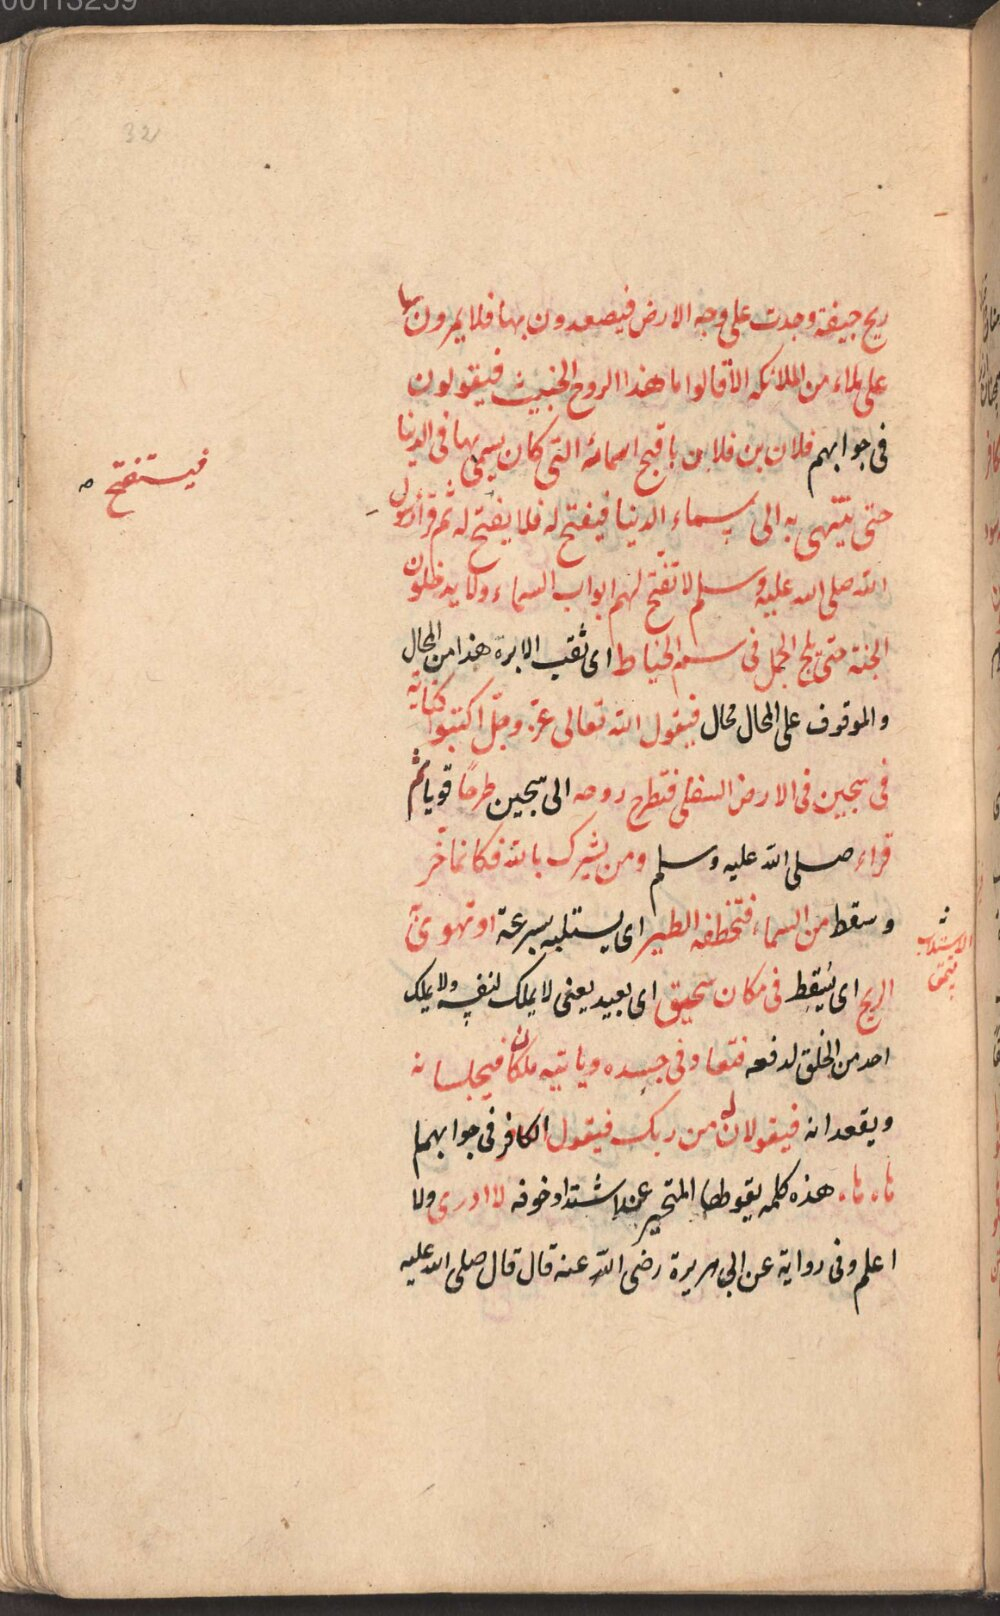 ريح جيفة وجدت على وجه الارض فيصعدون بها فلا يمرون بها
على ملاء من الملائكه الا قالوا ما هذا الروح الخبيث فيقولون
فى جوابهم فلان بن فلان باقبح اسمائه التى كان يسمى بها فى الدنيا
حتى ينتهى به الى سماء الدنيا فيفتح له فلا يفتح له ثم قرأ رسول
الله صلى الله عليه وسلم لا تفتح لهم ابواب السماء ولا يدخلون
الجنة حتى يلج الجمل فى سم الخياط اى ثقب الابرة هذا من المحال
والموقوف على المحال محال فيقول الله تعالى عز وجل اكتبوا كتابه
فى سجين فى الارض السفلى فتطرح روحه الى سجين طرحًا قويا ثم
قراء صلى الله عليه وسلم ومن يشرك بالله فكانما خر
وسقط من السماء فتخطفه الطير اى يستلبه بسرعة او تهوى به
الريح اى يُسْقِط فى مكان سحيق اى بعيد يعنى لا يملك لنفسه ولا يملك
احد من الخلق لدفعه فتعاد فى جسده وياتيه ملكان فيجلسانه
ويقعدانه فيقولان له من ربك فيقول الكافر فى جوابهما
هاه هاه هذه كلمه يقولها المتحير عند اشتداد خوفه لا ادرى ولا
اعلم وفى رواية عن ابى هريرة رضى الله عنه قال قال صلى الله عليه
فيستفتح
الاستلاب
32
00113259